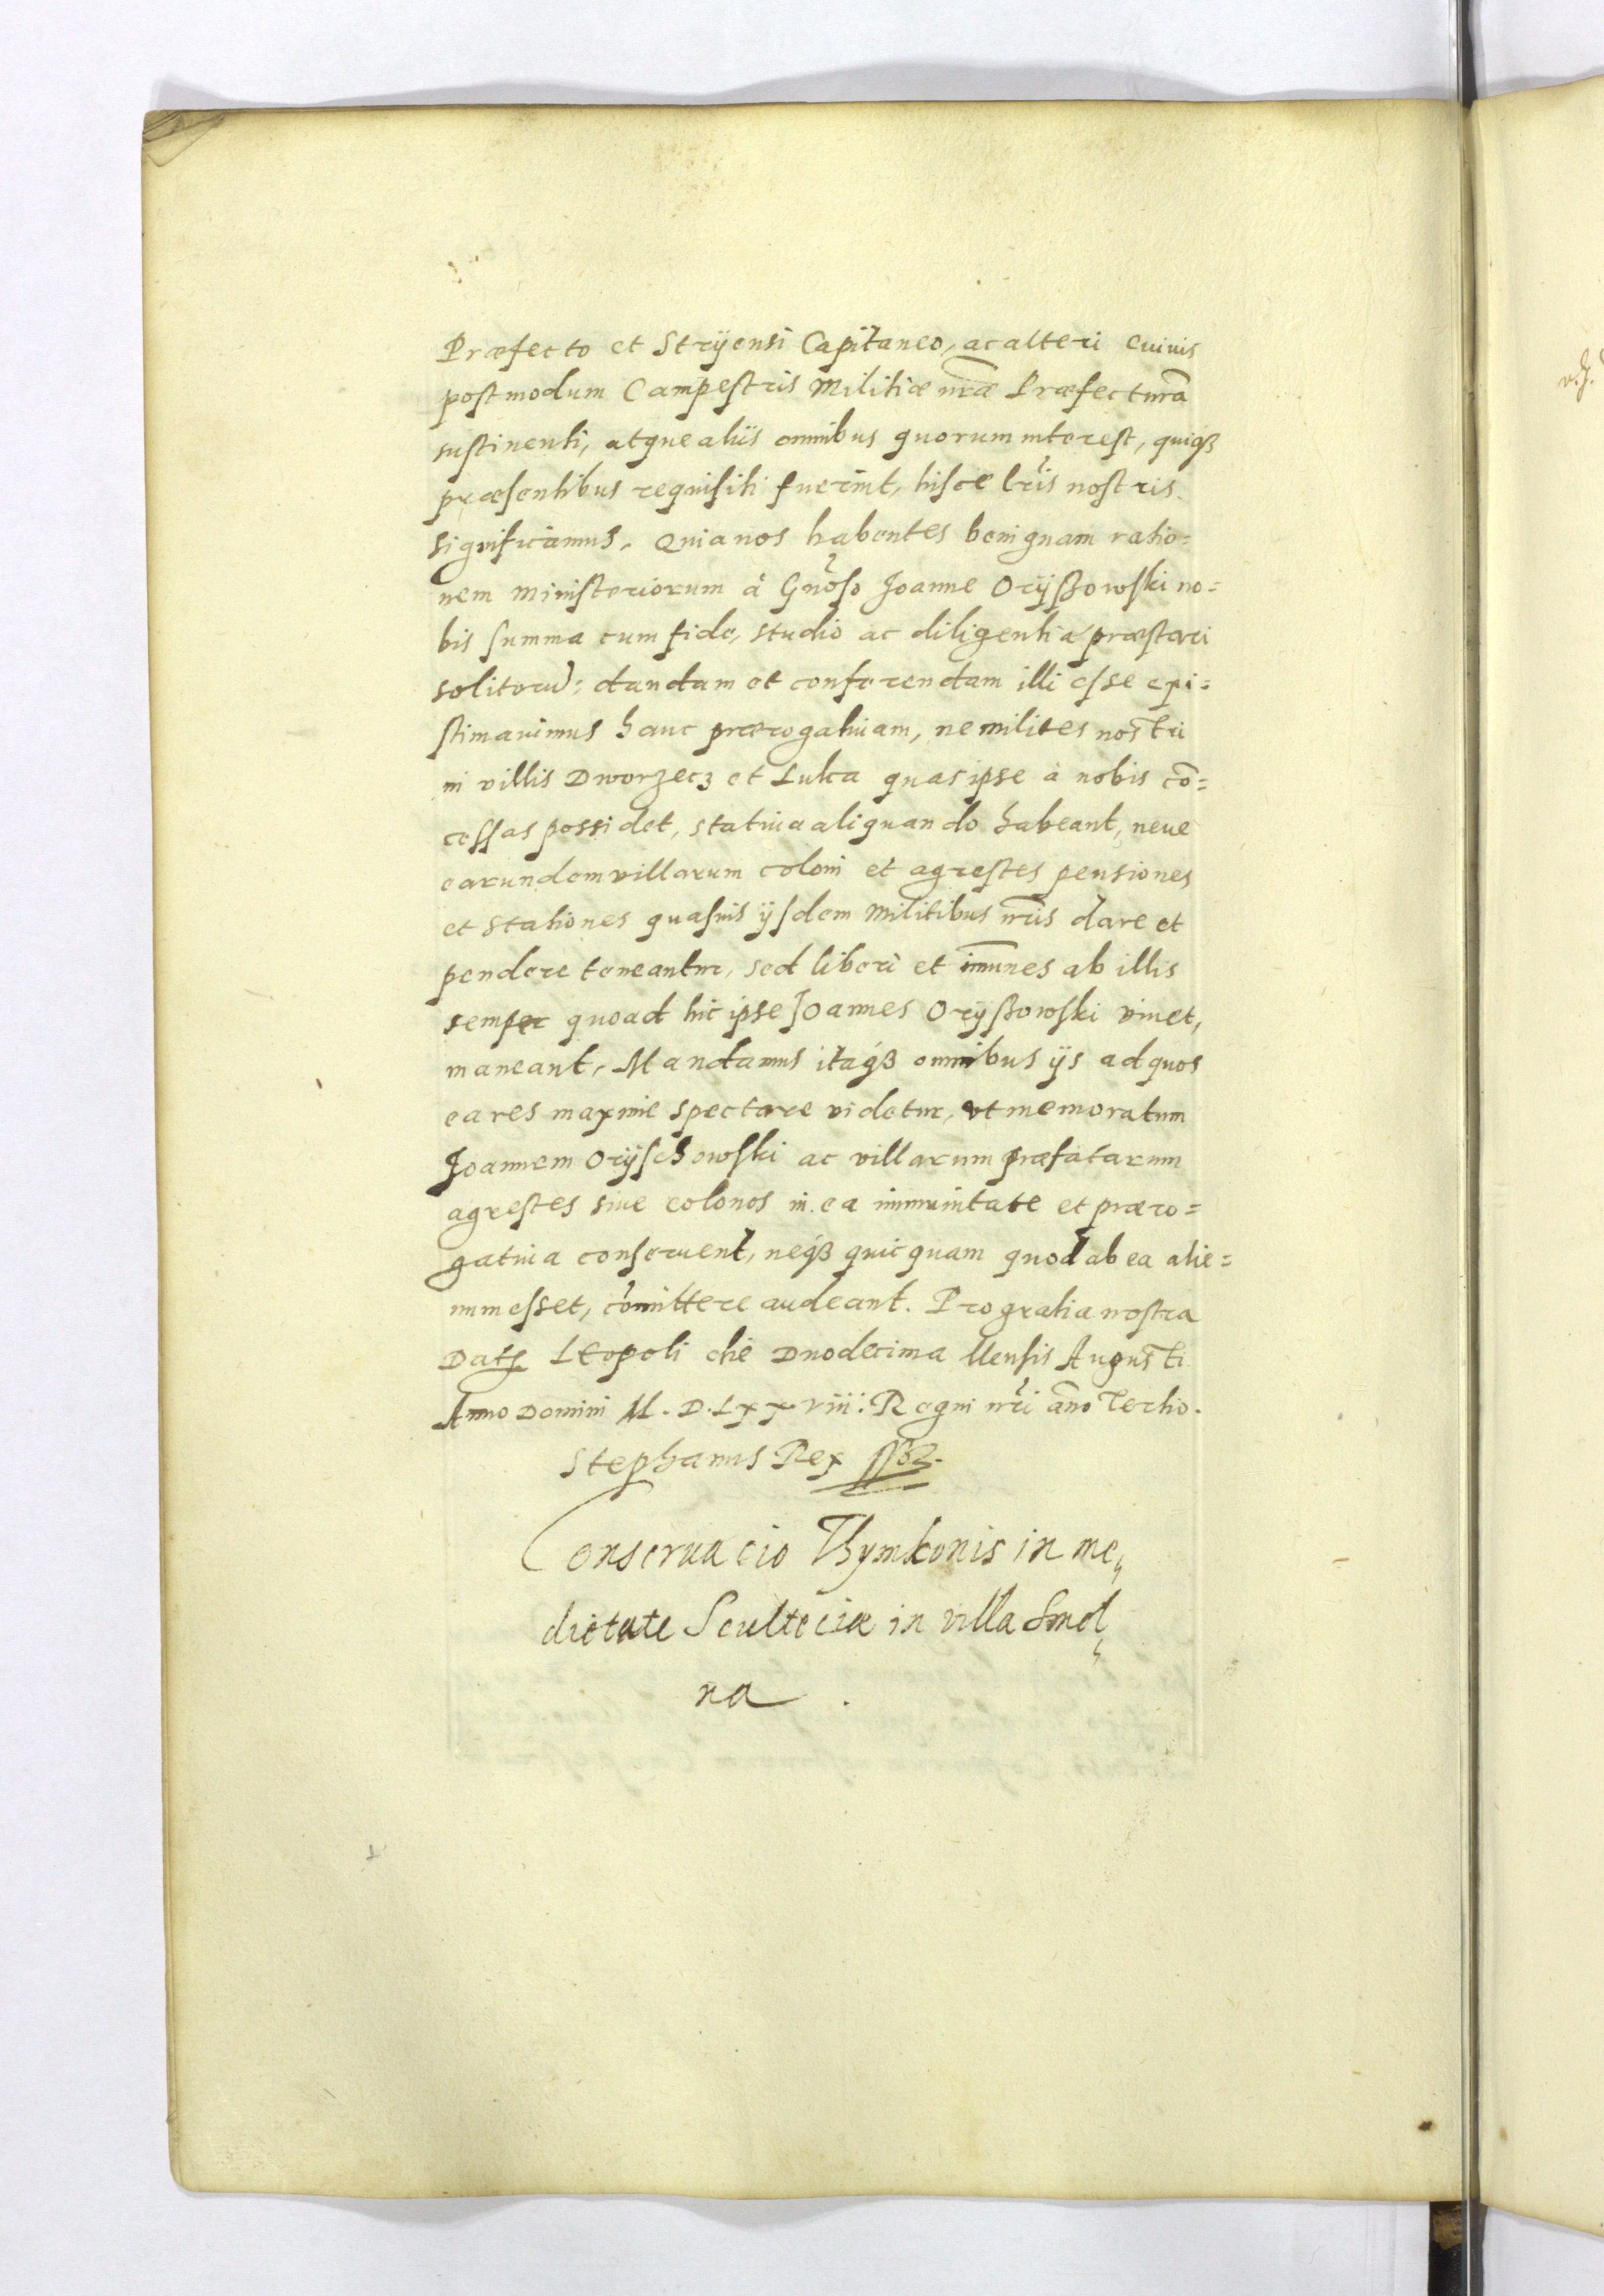 Præfecto et Stryensi Capitaneo, ac alteri cuivis
postmodum Campestris Militiæ nr̃æ Præfecturã
sustinenti, atque aliis omnibus quorum interest, quiqȝ
præsentibus requisiti fuerint, hisce lr̃is nostris
significamus. Quia nos habentes benignam ratio=
nem ministeriorum à Gñoso Joanne Oryßowski no=
bis summa cum fide, studio ac diligentia præstari
solitorũ: dandam et conferendam illi esse exi=
stimavimus hanc prærogativam, ne milites nostri
in villis Dworzecz et Luka quas ipse à nobis cõ=
cessas possidet, stativa aliquando habeant, neve
earundem villarum coloni et agrestes pensiones
et stationes quasvis ijsdem Militibus nr̃is dare et
pendere teneantur, sed liberi et im̃unes ab illis
semper quoad hic ipse Joannes Oryßowski vivet,
maneant. Mandamus itaqȝ omnibus ijs ad quos
ea res maxime spectare videtur, vt memoratum
Joannem Oryschowski ac villarum præfatarum
agrestes sive colonos in ea immunitate et præro=
gativa conservent, neqȝ quicquam quod ab ea alie=
num esset, com̃ittere audeant. Pro gratia nostra
Datȝ Leopoli die Duodecima Mensis Augusti
Anno Domini M.D.LXXViii: Regni nr̃i año Tertio.
Stephanus Rex sspt.
Conservacio Thymkonis in me„
dietate Scultetiæ in villa Smol„
na .